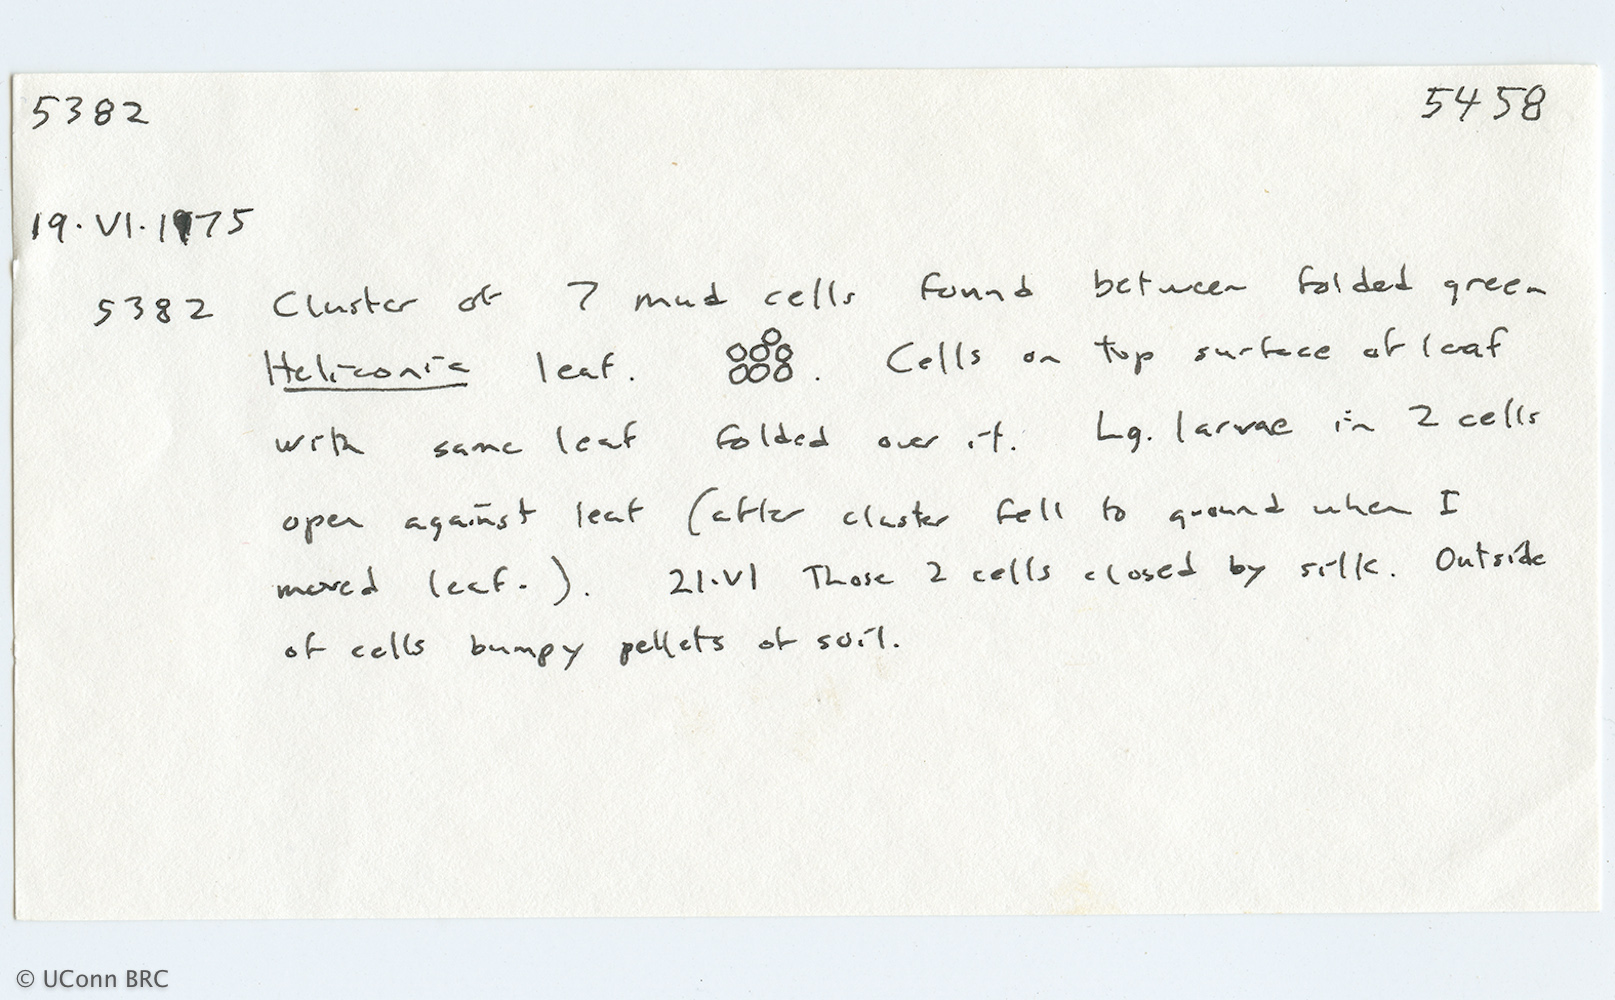 5382 5458
19.VI.1975
5382 Cluster of 7 mud cells found between folded green
Heliconia leaf. . Cells on top surface of leaf
with same leaf folded over it. Lg. larvae in 2 cells
open against leaf (after cluster fell to ground when I
moved leaf.). 21.VI Those 2 cells closed by silk. Outside
of cells bumpy pellets of soil.
© UConn BRC